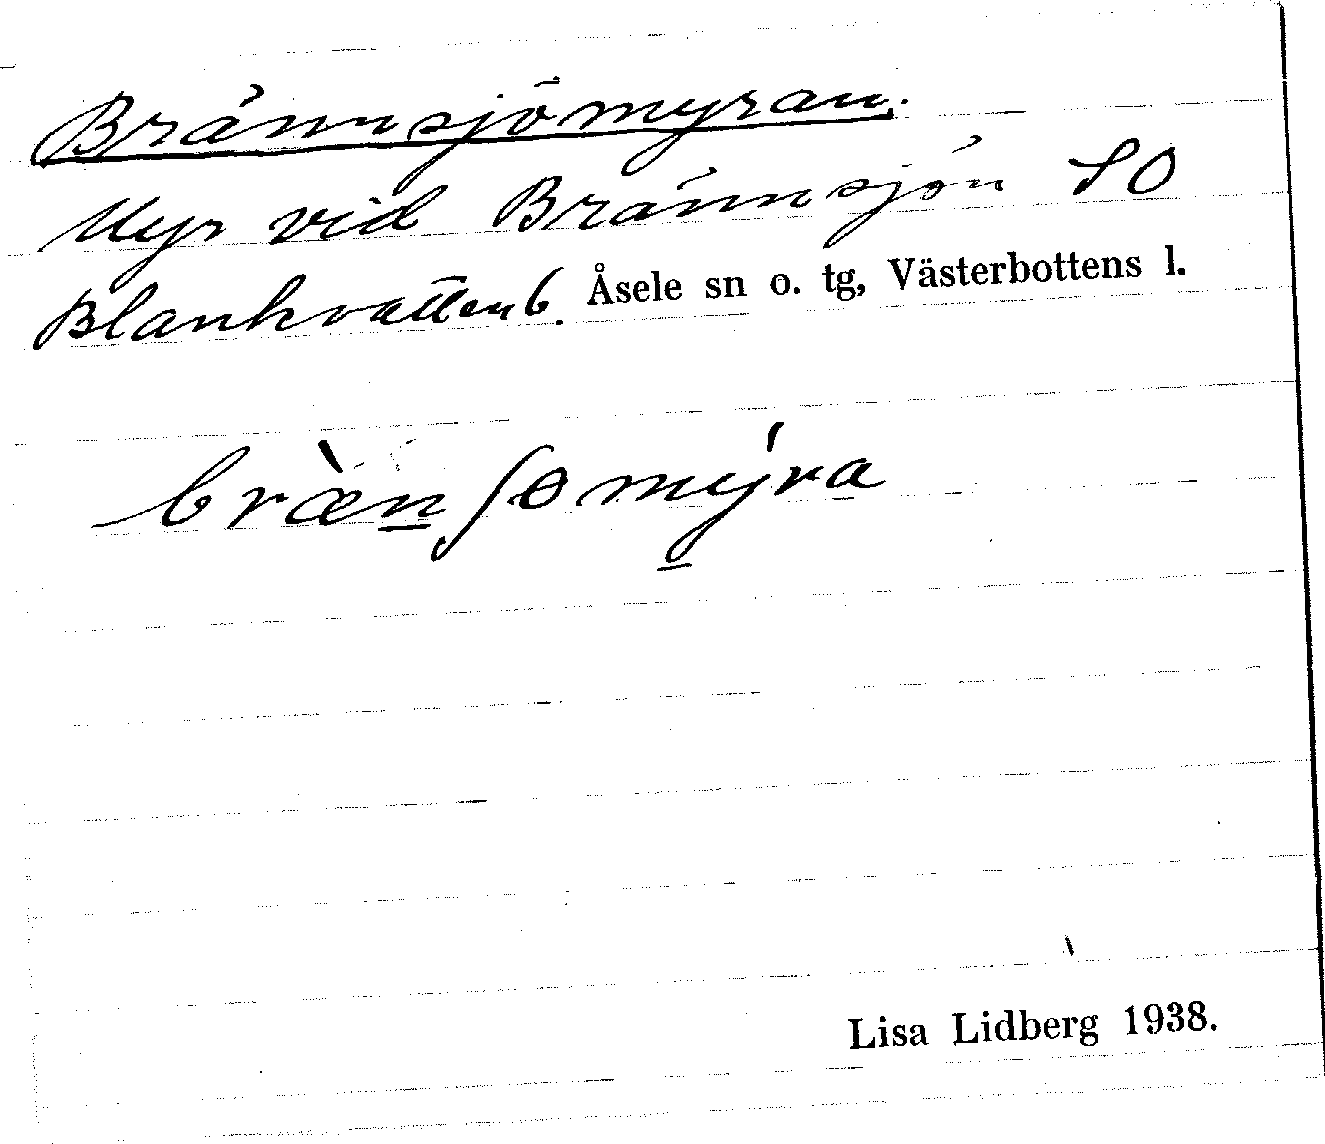 Brännsjömyran.
Myr vid Brännsjön SO
Blankvattenb. Åsele sn o. tg, Västerbottens l.
bræ̀nʃɵmýra
Lisa Lidberg 1938.